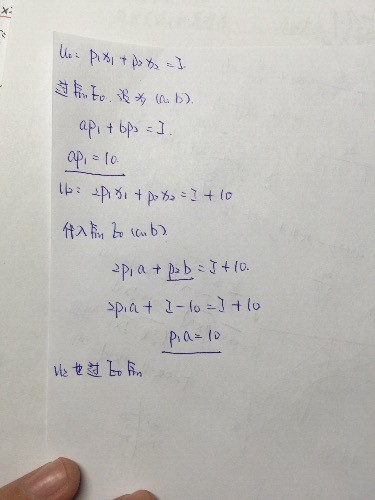 U₀: p₁x₁+p₂x₂=I
过点E₀. 设为(a,b).
ap₁+bp₂=I.
ap₁=10.
U₂: 2p₁x₁+p₂x₂=I+10
代入点E₀(a,b)
2p₁a+p₂b=I+10.
2p₁a+I-10=I+10
p₁a=10
U₂也过E₀点
x:
=